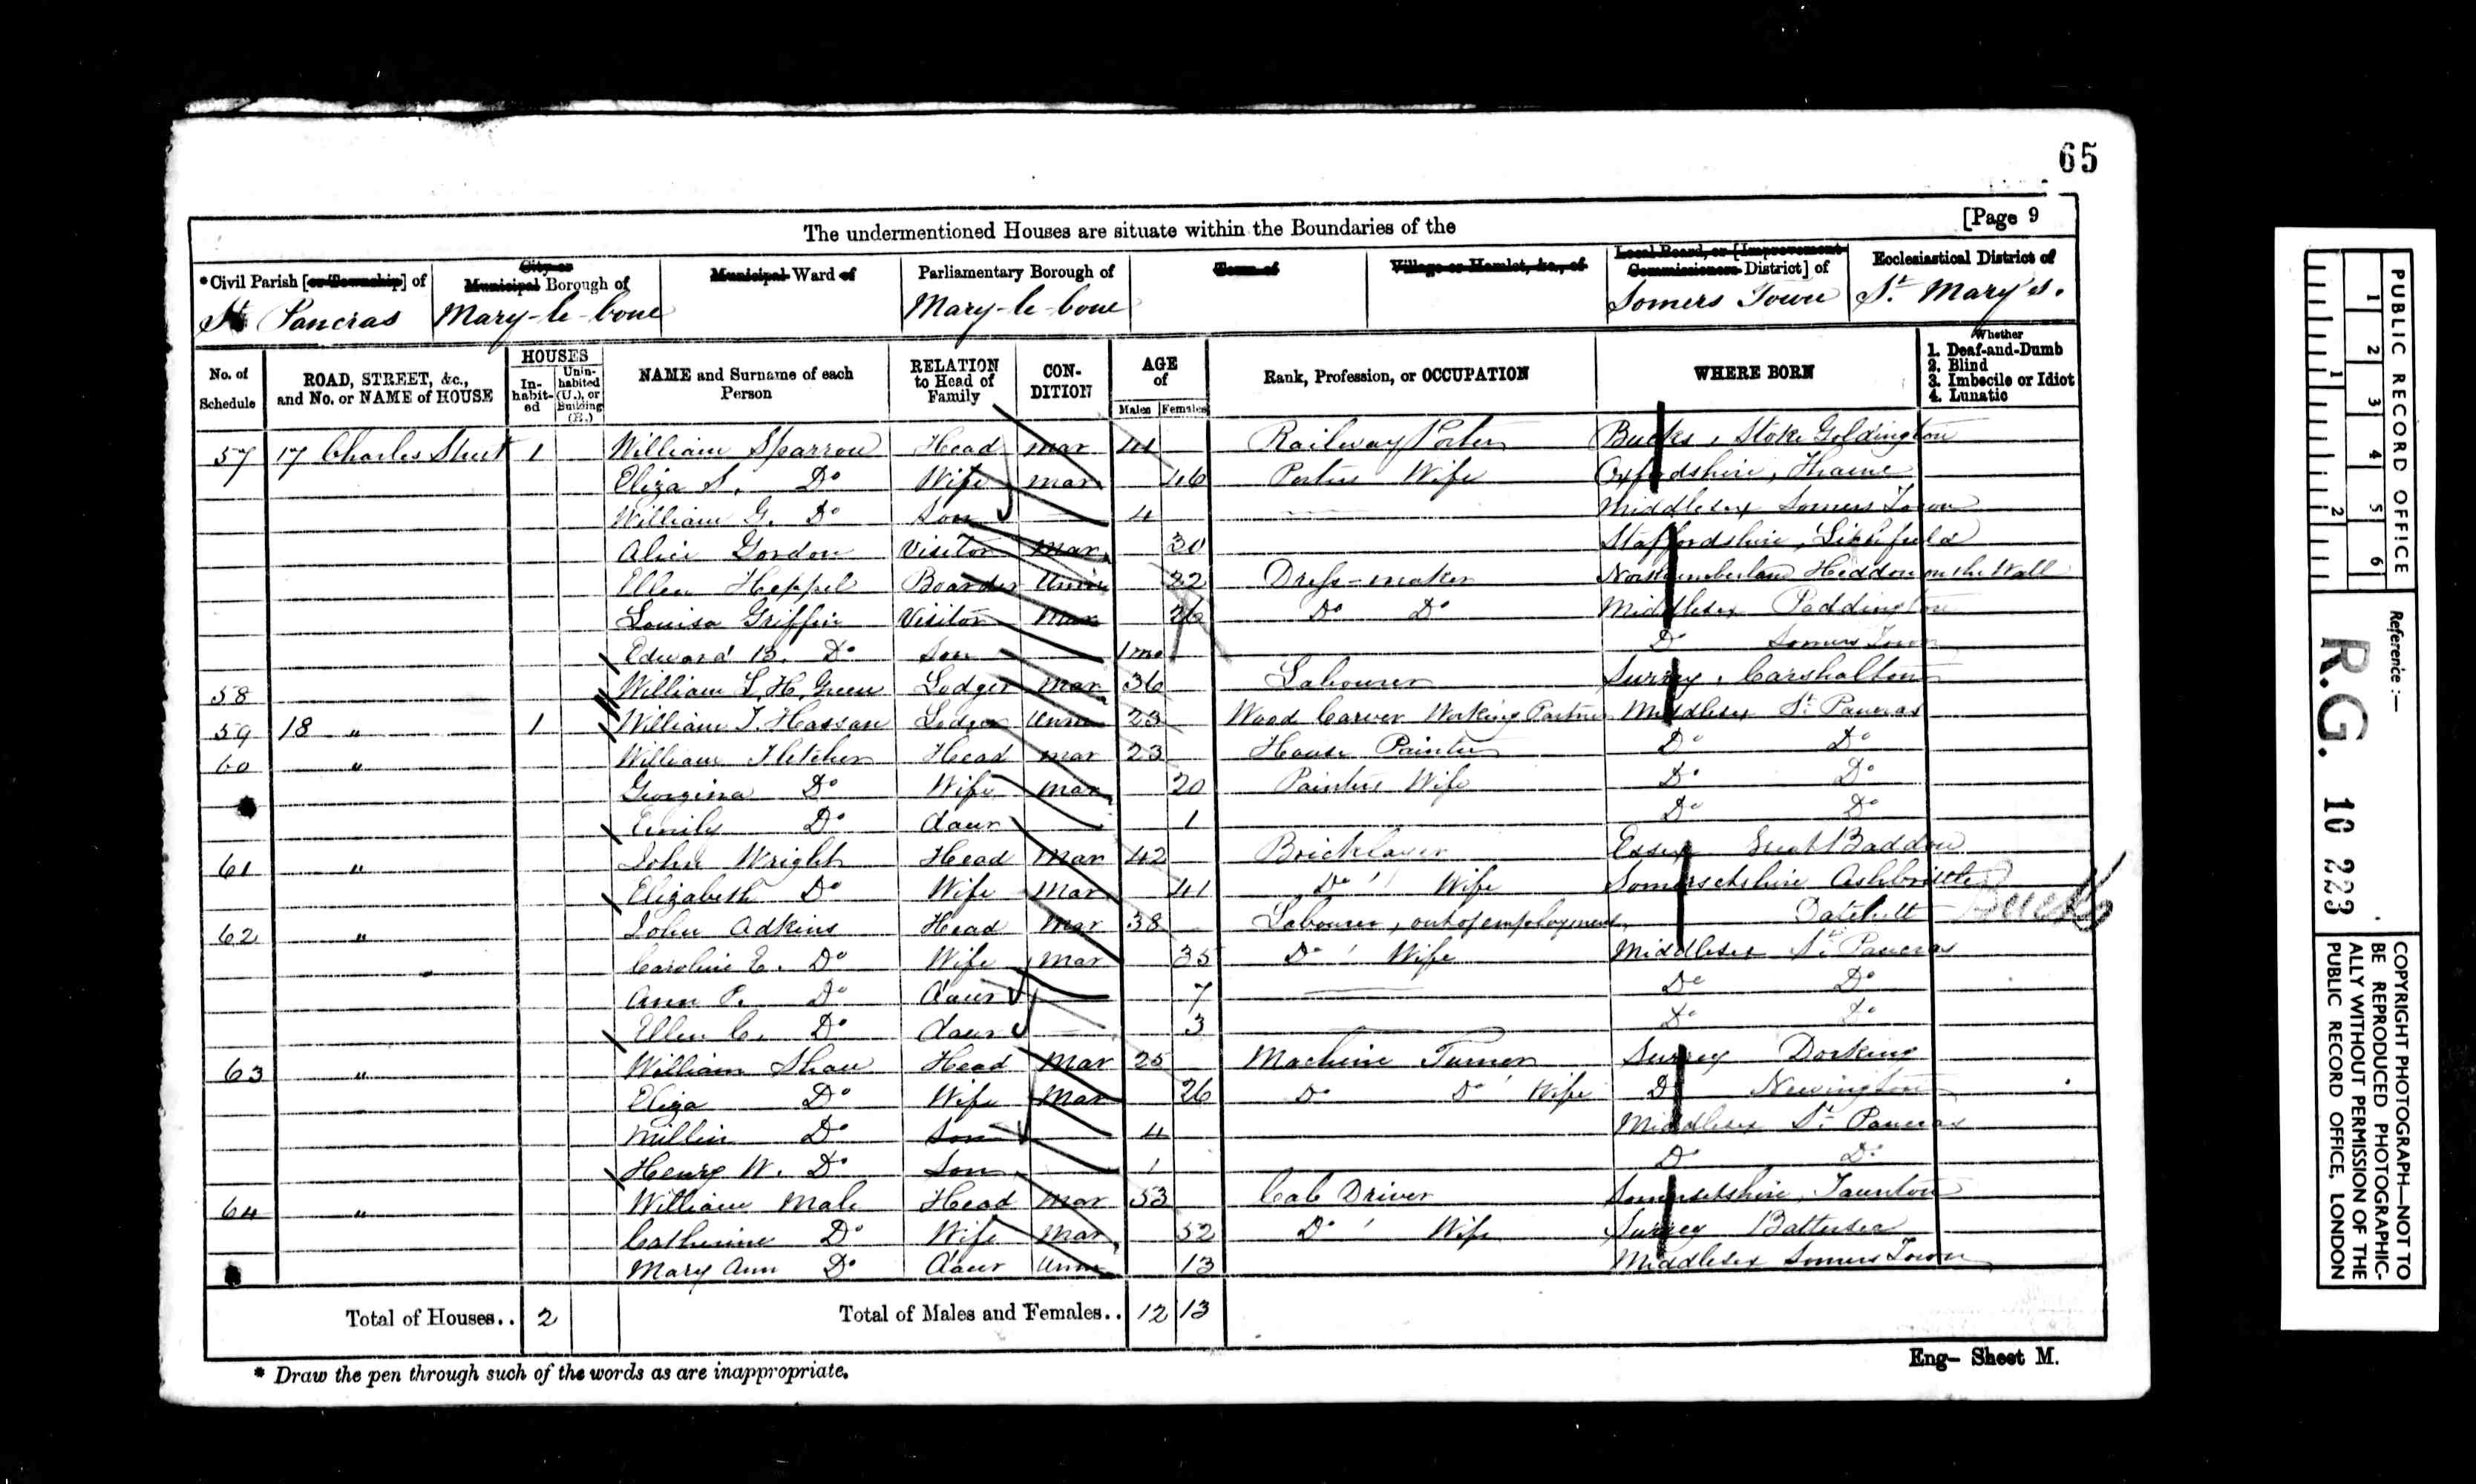 65
[Page 9
The undermentioned Houses are situate within the Boundaries of the
*Civil Parish [or Township] of City or Municipal Borough of Municipal Ward of Parliamentary Borough of Town of Village or Hamlet, &c., of Local Board, or [Improvement Commissioners District] of Ecclesiastical District of
St Pancras Mary-le-bone Mary-le-bone Somers Town St. Mary's.
No. of Schedule ROAD, STREET, &c., and No. or NAME of HOUSE HOUSES Inhabited Uninhabited (U.), or Building (B.) NAME and Surname of each Person RELATION to Head of Family CONDITION AGE of Males Females Rank, Profession, or OCCUPATION WHERE BORN Whether 1. Deaf-and-Dumb 2. Blind 3. Imbecile or Idiot 4. Lunatic
57 17 Charles Street 1 William Sparrow Head mar 44 Railway Porter Bucks, Stoke Goldington
Eliza S. Do Wife mar 46 Porters Wife Oxfordshire, Thame
William G. Do Son 4 Middlesex Somers Town
Alice Gordon Visitor mar 30 Staffordshire, Lichfield
Ellen Heppel Boarder Unm 22 Dress-maker Northumberland Heddon on the Wall
Louisa Griffin Visitor Mar 26 Do Do Middlesex Paddington
Edward B. Do Son 1mo Do Somers Town
58 William L. H. Green Lodger Mar 36 Labourer Surrey, Carshalton
59 18 " 1 William T. Hassan Lodger Unm 23 Wood Carver Working Partner Middlesex St. Pancras
60 " William Fletcher Head mar 23 House Painter Do Do
Georgina Do Wife Mar 20 Painters Wife Do Do
Emily Do daur 1 Do Do
61 " John Wright Head Mar 42 Bricklayer Essex Great Baddow
Elizabeth Do Wife Mar 41 Do Wife Somersetshire Ashbrittle
62 " John Adkins Head Mar 38 Labourer, out of employment Datchett Bucks
Caroline E. Do Wife Mar 35 Do Wife Middlesex St. Pancras
Ann P. Do daur 7 Do Do
Ellen C. Do daur 3 Do Do
63 " William Shaw Head Mar 25 Machine Turner Surrey Dorking
Eliza Do Wife Mar 26 Do Do Wife Do Newington
Millin Do Son 4 Middlesex St. Pancras
Henry W. Do Son 1 Do Do
64 " William Male Head Mar 53 Cab Driver Somersetshire, Taunton
Catherine Do Wife Mar 52 Do Wife Surrey Battersea
Mary Ann Do daur Unm 13 Middlesex Somers Town
Total of Houses.. 2 Total of Males and Females.. 12 13
* Draw the pen through such of the words as are inappropriate.
Eng- Sheet M.
PUBLIC RECORD OFFICE
1 2 3 4 5 6
1 2
Reference:-
R.G. 10 223
COPYRIGHT PHOTOGRAPH-NOT TO
BE REPRODUCED PHOTOGRAPHIC-
ALLY WITHOUT PERMISSION OF THE
PUBLIC RECORD OFFICE, LONDON